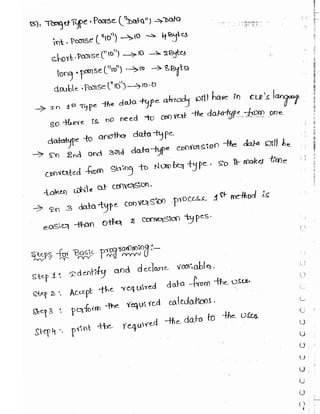 (3). Target Type . Parse ("Data") → Data
int . Parse ("10") → 10 → 4 Bytes
short . Parse ("10") → 10 → 2 Bytes
long . parse ("10") → 10 → 8 Byte
double . Parse ("10") → 10.0
→ In 1st Type the data type already will have in CLR's language
so there is no need to convert the datatype from one
datatype to another data type.
→ In 2nd and 3rd data-type conversion the data will be
converted from String to Number type. So It makes time
taken while at conversion.
→ In 3 data type conversion process 1st method is
easier than other 2 conversion types.
Steps for Basic programming :-
Step 1 : Identify and declare variables.
Step 2 : Accept the required data from the user.
Step 3 : perform the required calculations.
Step 4 : print the required the data to the user